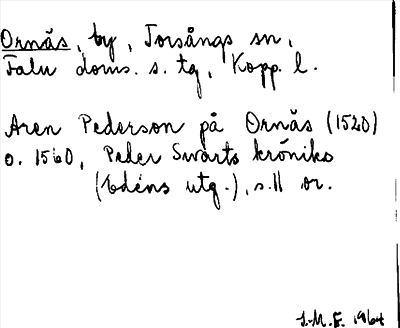 Ornäs, by, Torsångs sn,
Falu doms. s. tg, Kopp. l.
Aren Pederson på Ornäs (1520)
o. 1560, Peder Swarts krönika
(Edéns utg.), s. 11 or.
I.M.F. 1964